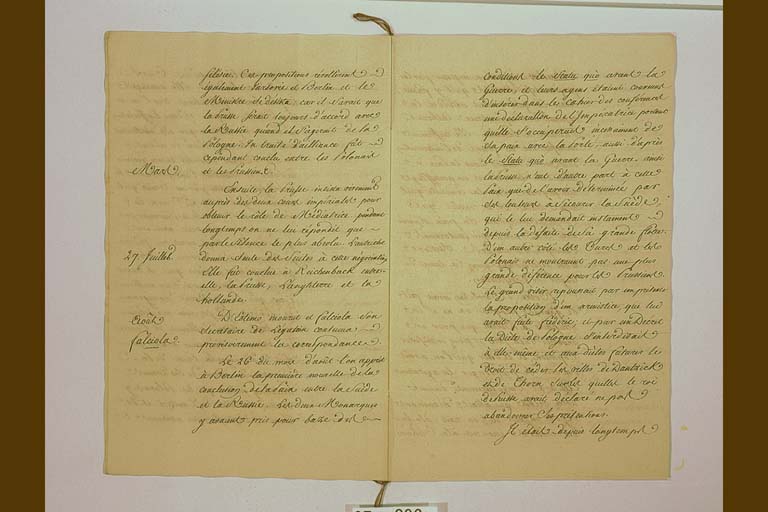 silésie. Ces propositions révoltèrent
également Varsovie et Berlin et le
Ministre de desira, car il s'avait que
la Prusse serait toujours d'accord avec
la Russie quand il s'agirait de la
Pologne. Un traité d'alliance fut
cependant conclu entre les Polonais
Mars. et les Prussiens.
Ensuite, la Prusse insista vivement
auprès des deux cours impériales pour
obtenir le rôle de Médiatrice, pendant
longtemps on ne lui répondit que
par le silence le plus absolu. L'autriche
27 Juillet. donna seule des suites à cette négociation
Elle fut conclue à Reichenback entre
elle, la Prusse, l'angleterre et la
hollande.
Août D. Colimo mourut et falciola son
Secrétaire de Légation continua
falciola provisoirement la correspondance.
Le 26 du mois d'août l'on apprit
à Berlin la première nouvelle de la
conclusion de la Paix entre la Suède
et la Russie. Les deux Monarques
y avaient pris pour base des
conditions le Statu quo avant la
Guerre, et leurs agens étaient convenus
d'insérer dans le Cahier des conférences
une déclaration de l'Impératrice portant
qu'elle s'occuperait incessament de
sa paix avec la Porte, aussi d'après
le Statu quo avant la Guerre. ainsi
la Prusse n'eut d'autre part à cette
Paix que de l'avoir déterminée par
ses lenteurs à secourir la Suède,
qui le lui demandait instament
depuis la défaite de la grande flotte.
D'un autre côté les Turcs et les
Polonais ne montraient pas une plus
grande déférence pour les Prussiens.
Le grand visir repoussait par un prétexte
la proposition d'un armistice que lui
avait faite fédéric, et par un Decret
la Diète de Pologne s'interdisait
à elle même et aux diètes futures le
Droit de céder les villes de Dantzick
et de Thorn sur les quelles le roi
de Prusse avait déclaré ne pas
abandonner ses prétentions.
Il était depuis longtemps